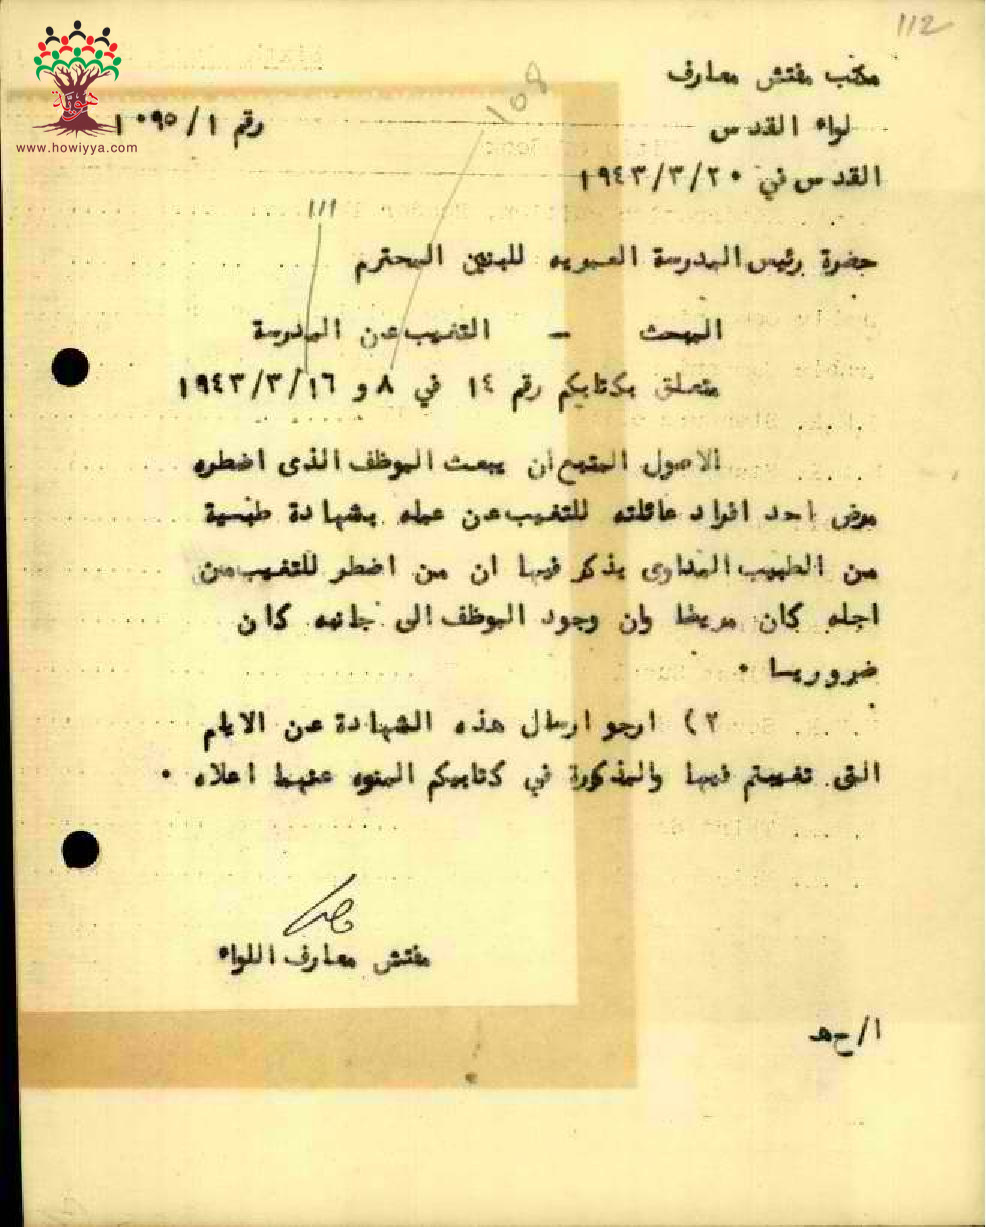 112
مكتب مفتش معارف
لواء القدس
رقم ١/١٠٩٥
القدس في ١٩٤٣/٣/٢٠
108
111
www.howiyya.com
هوية
حضرة رئيس المدرسة العمريه للبنين المحترم
البحث - التغيب عن المدرسة
متعلق بكتابكم رقم ١٤ في ٨ و ١٩٤٣/٣/١٦
الاصول المتبع ان يبعث الموظف الذى اضطره
مرض احد افراد عائلته للتغيب عن عمله بشهادة طبية
من الطبيب المداوى يذكر فيها ان من اضطر للتغيب من
اجله كان مريضا وان وجود الموظف الى جانبه كان
ضروريا ٠
٢) ارجو ارسال هذه الشهادة عن الايام
التى تغيبتم فيها والمذكورة في كتابيكم المنوه عنهما اعلاه ٠
مفتش معارف اللواء
ا/ح هـ